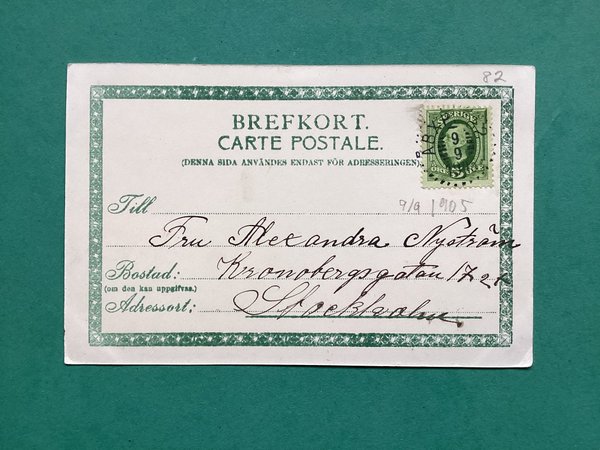 82
BREFKORT.
CARTE POSTALE.
(DENNA SIDA ANVÄNDES ENDAST FÖR ADRESSERINGEN)
SVERIGE
9
9
9/9 1905
Till
Fru Alexandra Nyström
Bostad: Kronobergsgatan 17 2tr
(om den kan uppgifvas.)
Adressort: Stockholm.